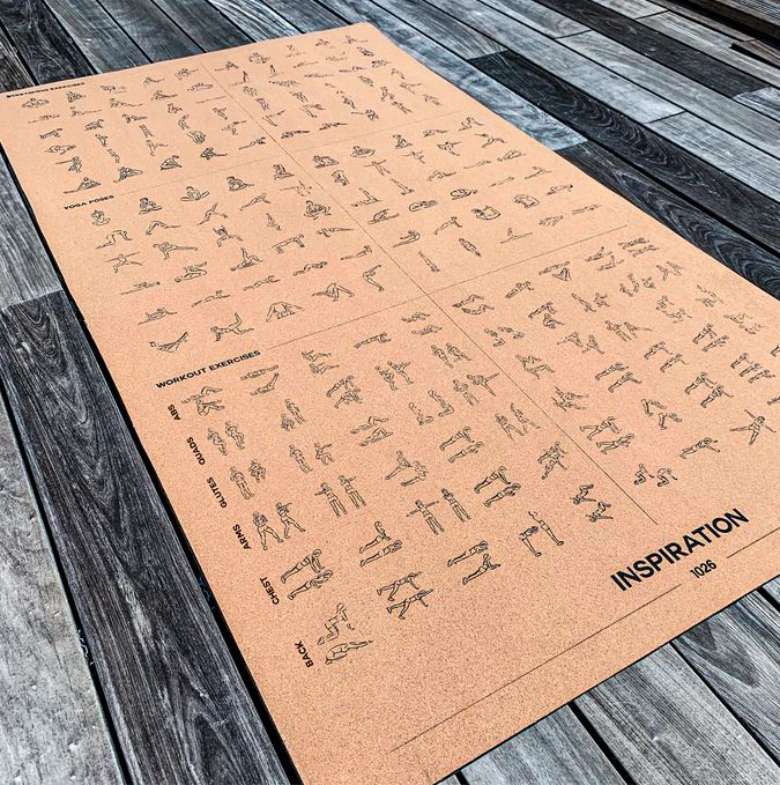 STRETCHING EXERCISES
YOGA POSES
WORKOUT EXERCISES
ABS
QUADS
GLUTES
ARMS
CHEST
BACK
INSPIRATION
1026